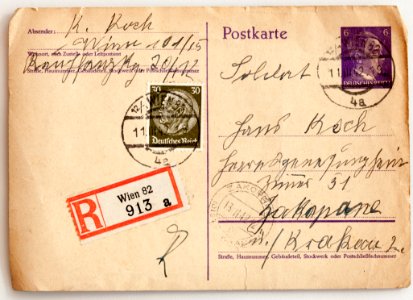 Absender: K. Koch
Wien 101/15
Wohnort, auch Zustell- oder Leitpostamt
20/12
Straße, Hausnummer, Gebäudeteil, Stockwerk oder Postschließfachnummer
Postkarte
6 6
30 30
Deutsches Reich
WIEN
11.
4a
4a
R
Wien 82
913 a
Soldat
Hans Koch
Heeresgenesungsheim
Zimmer 31
ZAKOPANE
Zakopane
b./Krakau 2.
Straße, Hausnummer, Gebäudeteil, Stockwerk oder Postschließfachnummer